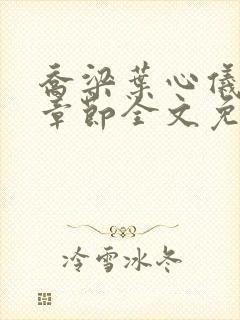 乔梁叶心仪
章节全文免
冷雪冰冬